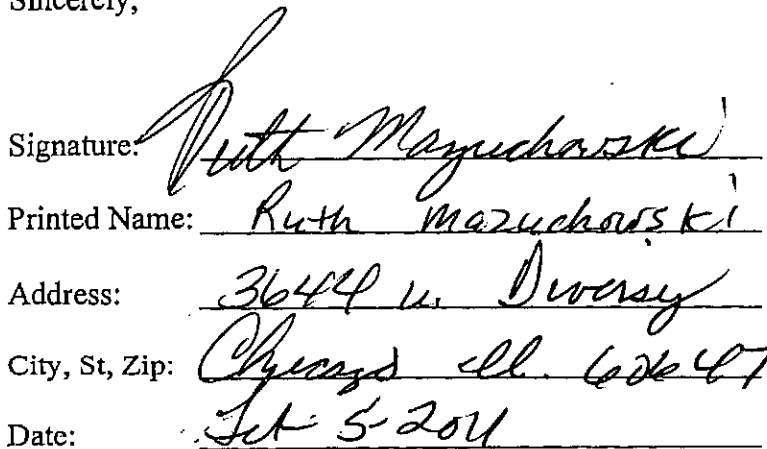 Sincerely,
Signature: Ruth Mazuchowski
Printed Name: Ruth Mazuchowski
Address: 3644 W. Diversy
City, St, Zip: Chicago Ill. 60647
Date: 5-2011